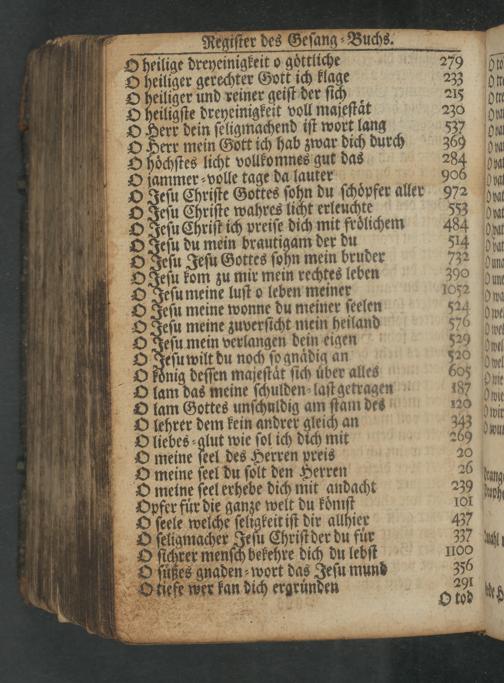 Register des Gesang-Buchs.
O heilige dreyeinigkeit o göttliche 279
O heiliger gerechter Gott ich klage 233
O heiliger und reiner geist der sich 215
O heiligste dreyeinigkeit voll majestät 230
O Herr dein seligmachend ist wort lang 537
O Herr mein Gott ich hab zwar dich durch 369
O höchstes licht vollkomnes gut das 284
O jammer-volle tage da lauter 906
O Jesu Christe Gottes sohn du schöpfer aller 972
O Jesu Christe wahres licht erleuchte 553
O Jesu Christ ich preise dich mit frölichem 484
O Jesu du mein brautigam der du 514
O Jesu Jesu Gottes sohn mein bruder 732
O Jesu kom zu mir mein rechtes leben 390
O Jesu meine lust o leben meiner 1052
O Jesu meine wonne du meiner seelen 524
O Jesu meine zuversicht mein heiland 576
O Jesu mein verlangen dein eigen 529
O Jesu wilt du noch so gnädig an 520
O könig dessen majestät sich über alles 605
O lam das meine schulden-last getragen 187
O lam Gottes unschuldig am stam des 120
O lehrer dem kein andrer gleich an 343
O liebes-glut wie sol ich dich mit 269
O meine seel des Herren preis 20
O meine seel du solt den Herren 26
O meine seel erhebe dich mit andacht 239
Opfer für die ganze welt du kömst 101
O seele welche seligkeit ist dir allhier 437
O seligmacher Jesu Christ der du für 337
O sichrer mensch bekehre dich du lebst 1100
O süßes gnaden-wort das Jesu mund 356
O tiefe wer kan dich ergründen 291
O tod